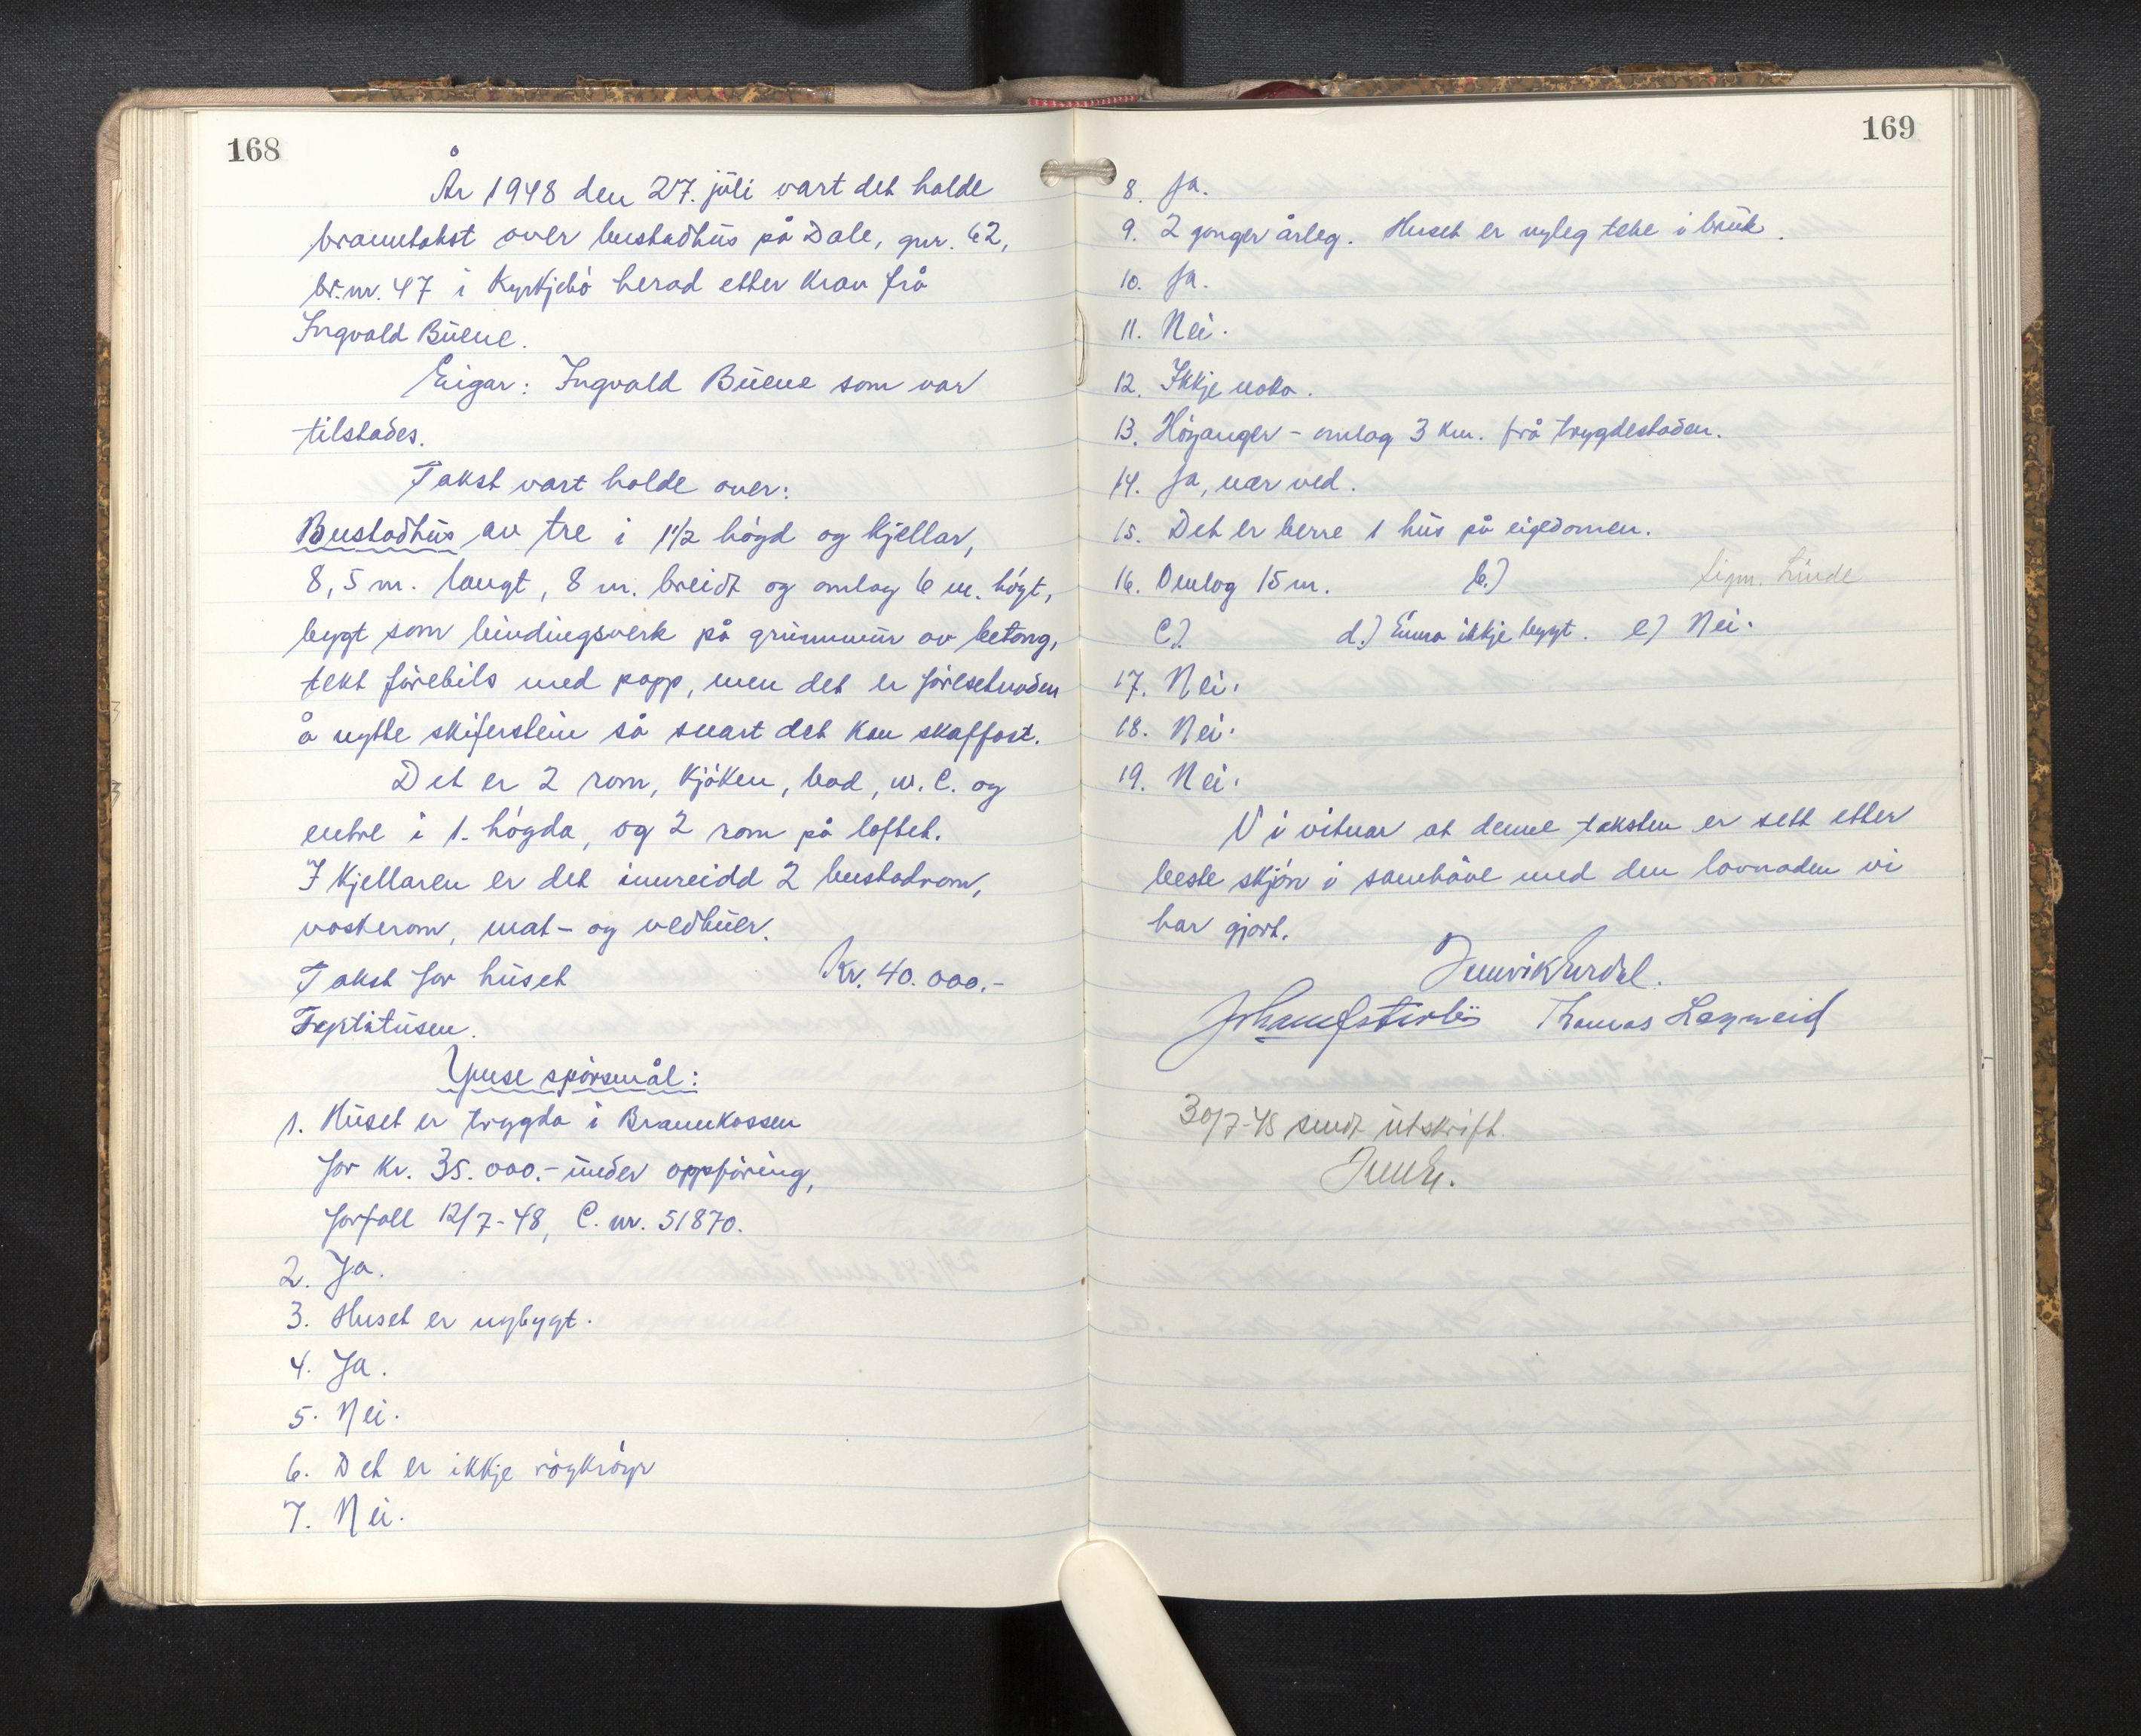 168
År 1948 den 27. júli vart det halde
branntakst over bustadhús på Dale, gnr. 62,
br.nr. 47 i Kyrkjebö herad etter krav frå
Ingvald Búene.
Eigar: Ingvald Búene som var
tilstades.
Takst vart halde over:
Bustadhús av tre i 1 1/2 högd og kjellar,
8,5 m. langt, 8 m. breidt og omlag 6 m. högt,
bygt som bindingsverk på grúnnmúr av betong,
tekt fôrebils med papp, men det er föresetnaden
å nytte skiferstein så snart det kan skaffast.
Det er 2 rom, kjöken, bad, w.c. og
entre i 1. högda, og 2 rom på loftet.
I kjellaren er det innreidd 2 bustadrom,
vaskerom, mat- og vedbúer.
Takst for húset Kr. 40.000.-
Förtitúsen.
Ymse spörsmål:
1. Húset er trygda i Brannkassen
for kr. 35.000.- únder oppföring,
forfall 12/7-48, C. nr. 51870.
2. Ja.
3. Huset er nybygt.
4. Ja.
5. Nei.
6. Det er ikkje röykröyr
7. Nei.
169
8. Ja.
9. 2 gonger årleg. Huset er nyleg teke i brúk.
10. Ja.
11. Nei.
12. Ikkje noko.
13. Höyanger - omlag 3 km. frå trygdestaden.
14. Ja, nær ved.
15. Det er berre 1 hús på eigedomen.
16. Omlog 15 m. b.) Sigm. Linde
c.) d.) Enno ikkje bygt. e) Nei.
17. Nei.
18. Nei.
19. Nei.
Vi vitnar at denne taksten er sett etter
beste skjön i samhöve med den lovnaden vi
har gjort.
Thomas Legneid
30/7-48 sendt útskrift.